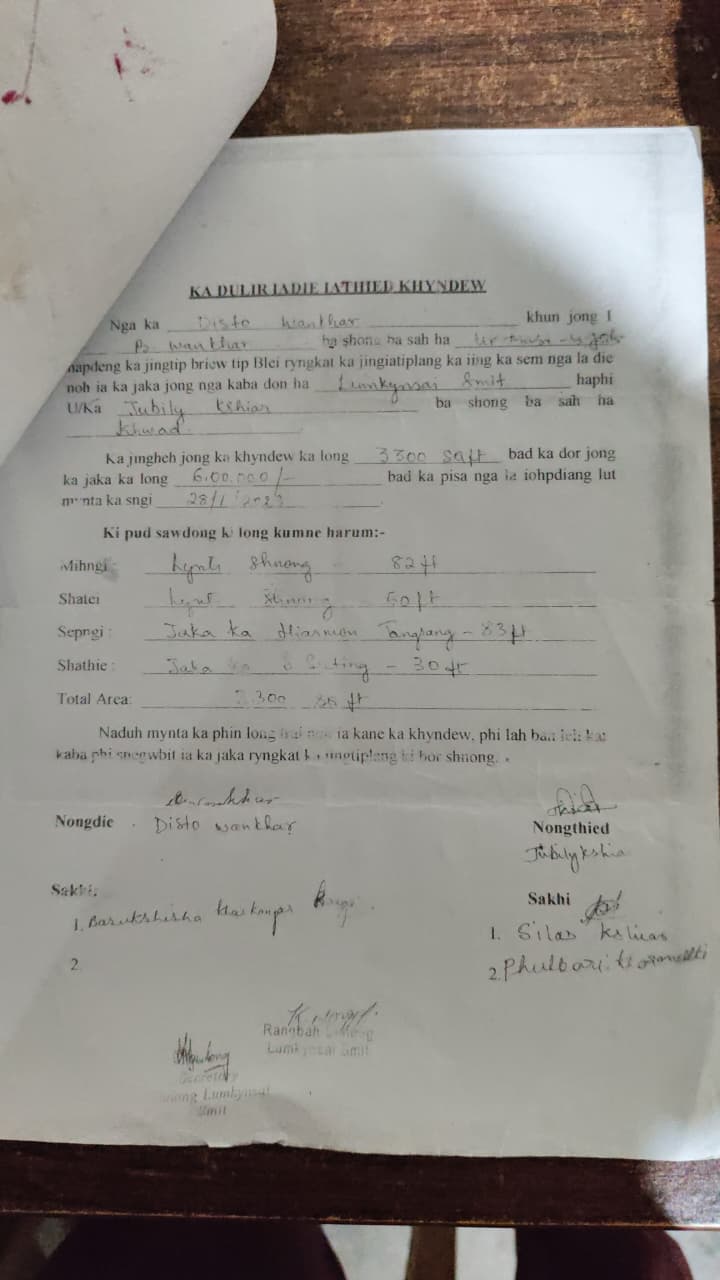 KA DULIR IADIE IATHIED KHYNDEW
Nga ka Disto Wankhar khun jong I
P. Wankhar ba shong ba sah ha
hapdeng ka jingtip briew tip Blei ryngkat ka jingiatiplang ka iing ka sem nga la die
noh ia ka jaka jong nga kaba don ha Lumkynsai Smit haphi
U/Ka Jubily Kshiar ba shong ba sah ha
Khwad
Ka jingheh jong ka khyndew ka long 3300 sqft bad ka dor jong
ka jaka ka long 6,00,000/- bad ka pisa nga la iohpdiang lut
mynta ka sngi 28/1/2023
Ki pud sawdong ki long kumne harum:-
Mihngi : Lynti Shnong 82 ft
Shatei Shnong 50 ft
Sepngi : Jaka ka Hiarmon Tangsang - 83 ft
Shathie : Jaka - 30 ft
Total Area: 3300 ft
Naduh mynta ka phin long ia kane ka khyndew, phi lah ban leh kat
kaba phi sngewbit ia ka jaka ryngkat ka jingtiplang ki bor shnong.
Nongdie Disto Wankhar
Nongthied
Jubily Kshia
Sakhi:
1. Barukshisha Kharkongor
2.
Sakhi
1. Silas Kshiar
2. Phulbari
Rangbah Shnong
Lumkynsai Smit
Secretary
Shnong Lumkynsai
Smit